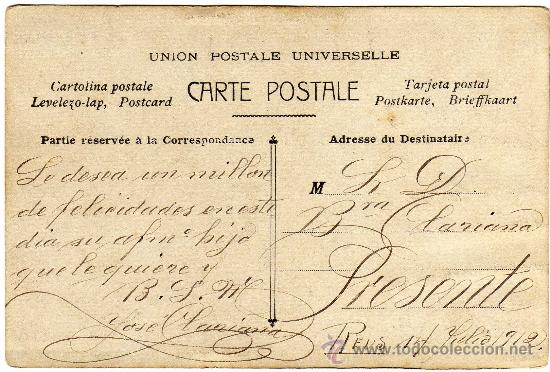 UNION POSTALE UNIVERSELLE
Cartolina postale
Levelezo-lap, Postcard
CARTE POSTALE
Tarjeta postal
Postkarte, Brieffkaart
Partie réservée à la Correspondance
Le desea un millon
de felicidades en este
dia su afmo hijo
que le quiere y
B. S. M.
José Clariana
Adresse du Destinataire
M S. D.
Bra Clariana
Presente
Reus Julio 912
todocoleccion
www.todocoleccion.net